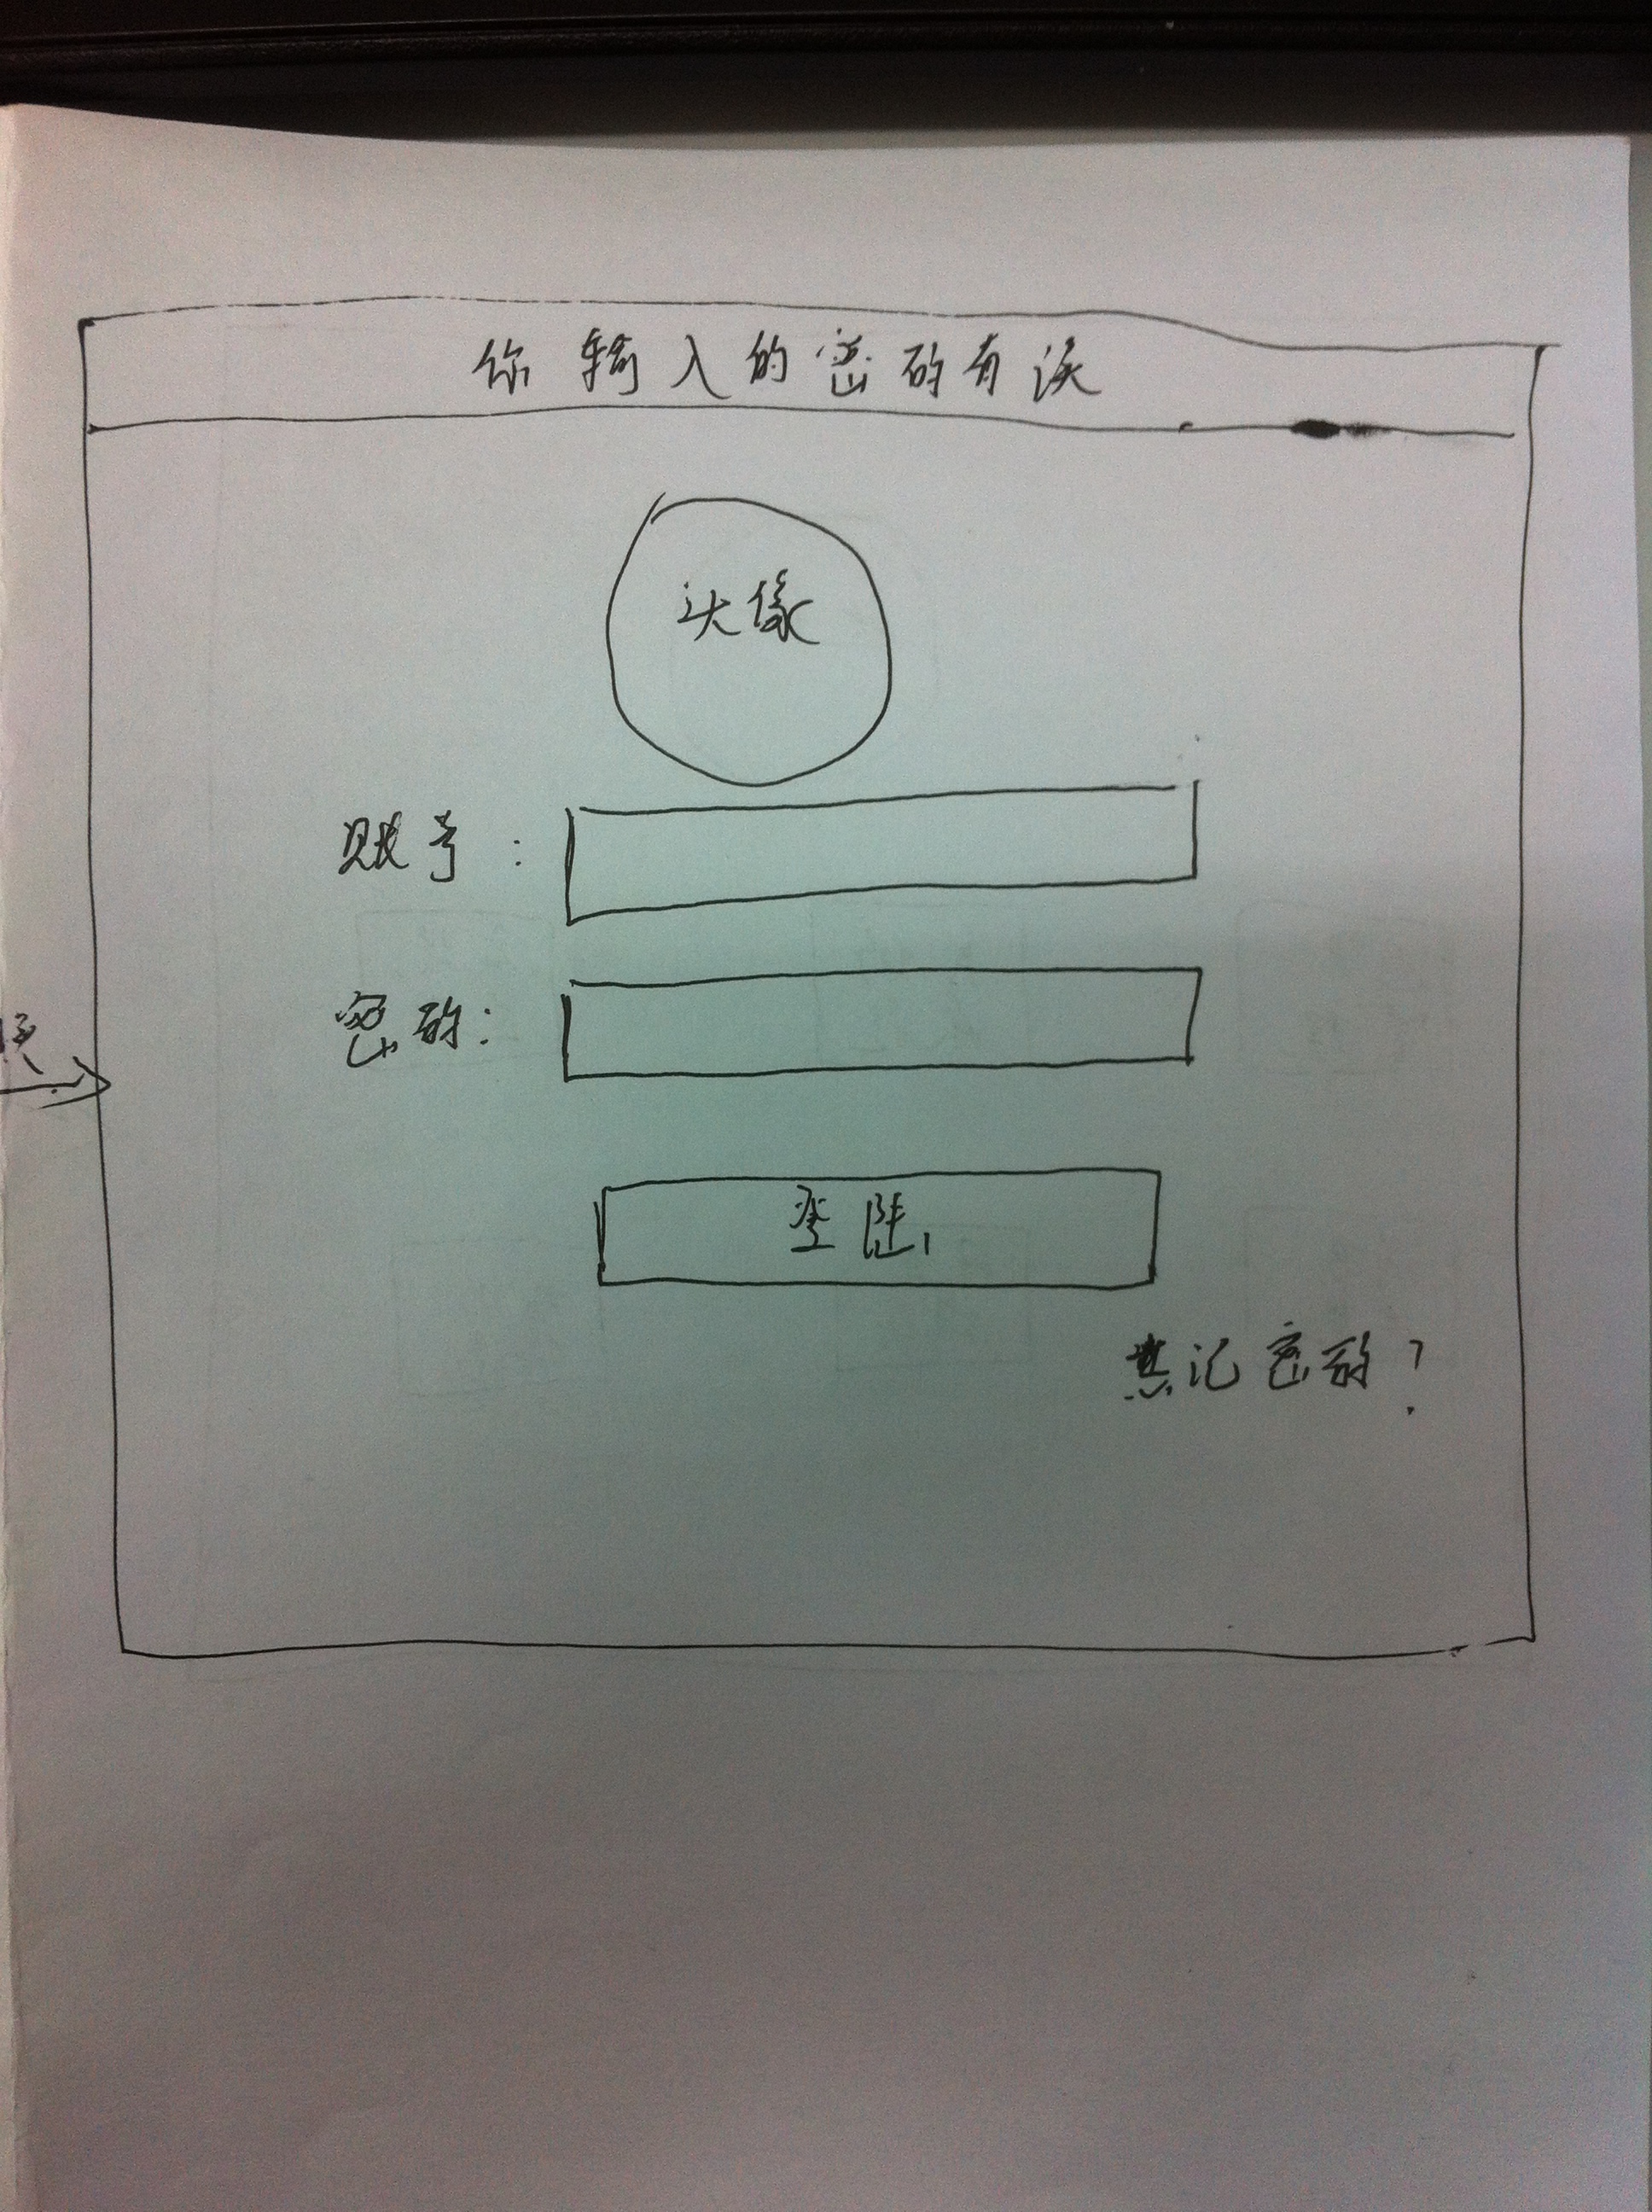 你输入的密码有误
头像
账号：
密码：
登陆
忘记密码？